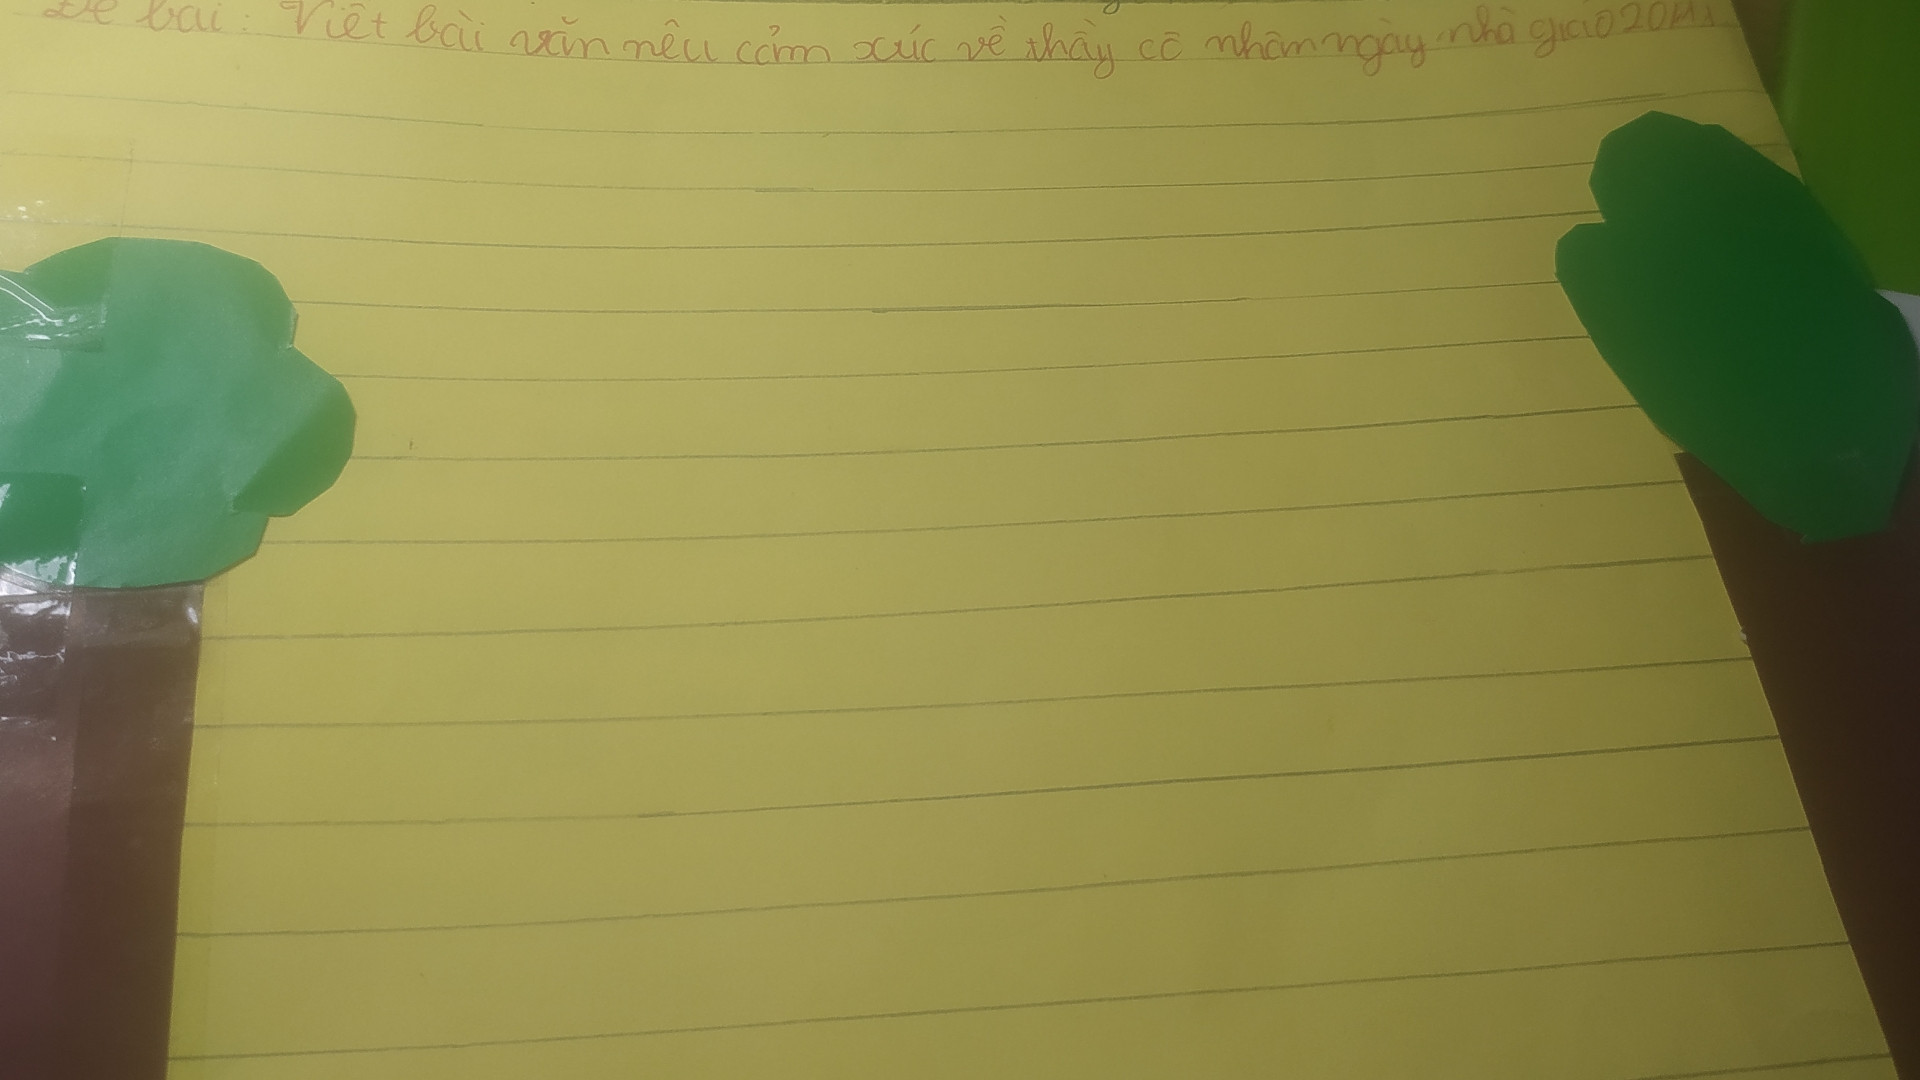 Đề bài: Viết bài văn nêu cảm xúc về thầy cô nhân ngày nhà giáo 20/11